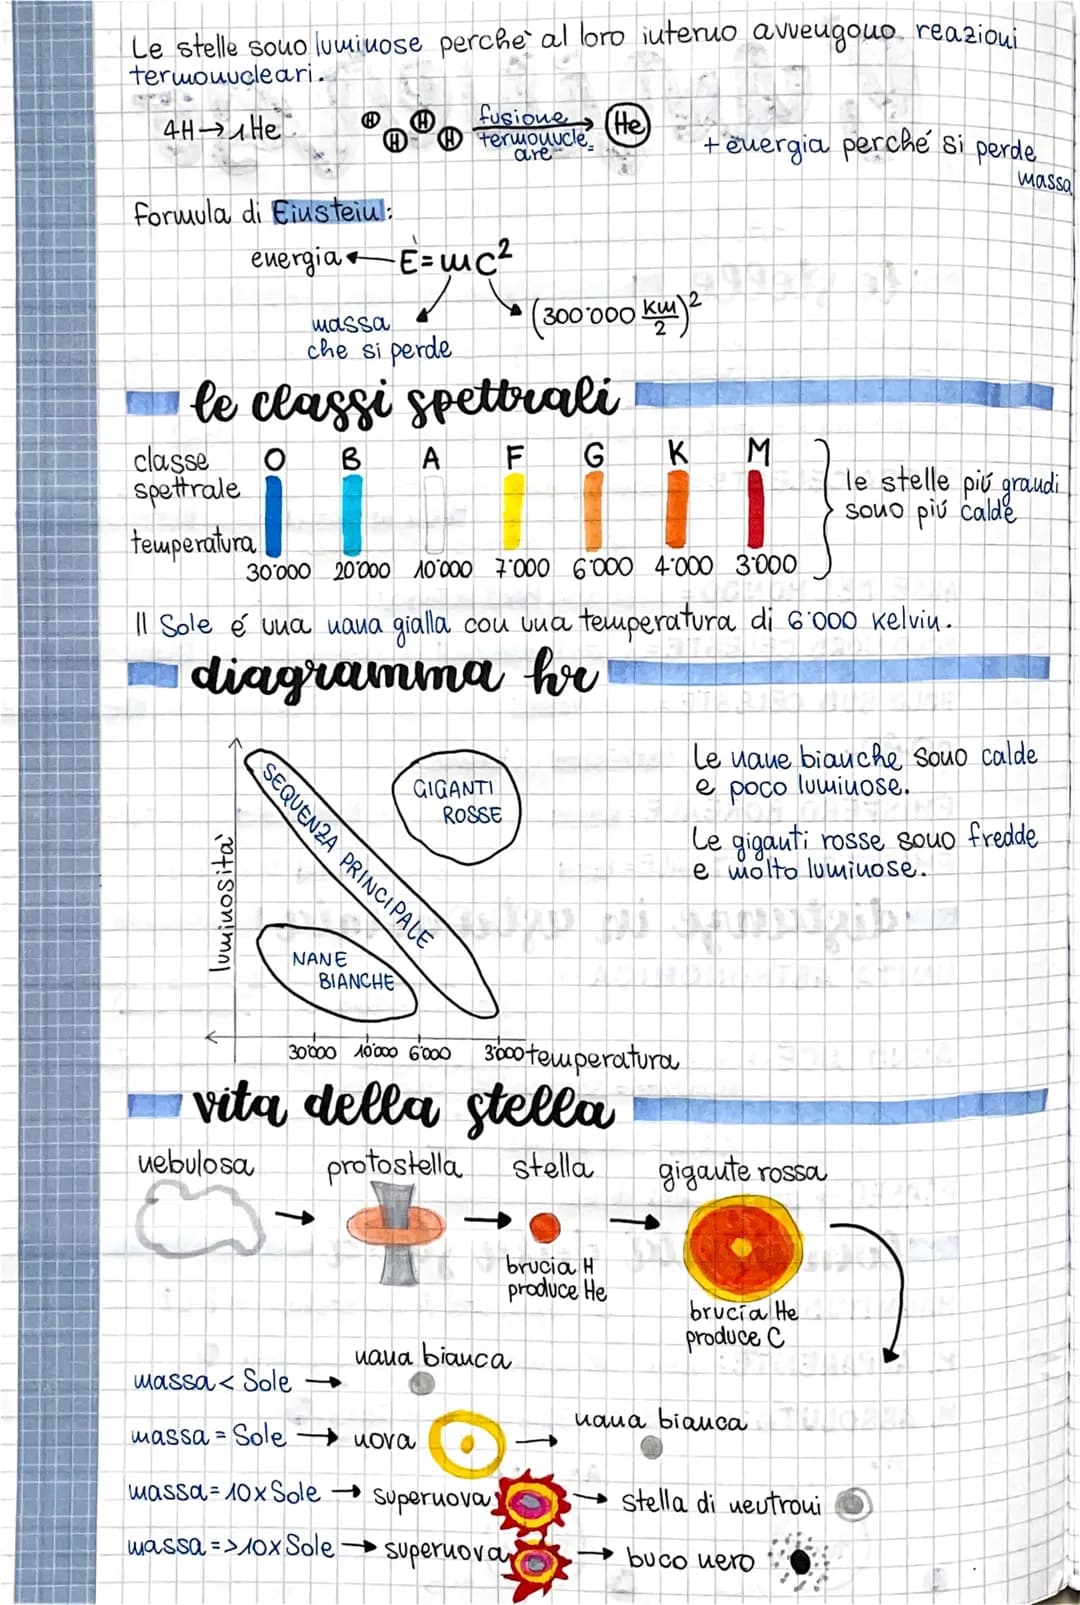 Le stelle sono luminose perchè al loro interno avvengono reazioni
termonucleari.
4H→1He
H H H H fusione termonucle=are He
+ energia perché si perde
massa
formula di Einstein:
energia ← E=mc²
massa
che si perde
(300'000 km/2)²
le classi spettrali
classe spettrale O B A F G K M
temperatura
30'000 20'000 10'000 7'000 6'000 4'000 3'000
le stelle piú grandi
sono piú calde
Il Sole é una nana gialla con una temperatura di 6'000 kelvin.
diagramma hr
luminosità
SEQUENZA PRINCIPALE
GIGANTI
ROSSE
NANE
BIANCHE
30'000 10'000 6'000 3'000 temperatura
Le nane bianche sono calde
e poco luminose.
Le giganti rosse sono fredde
e molto luminose.
vita della stella
nebulosa → protostella → stella → gigante rossa
brucia H
produce He
brucia He
produce C
massa < Sole → nana bianca
massa = Sole → nova → nana bianca
massa = 10x Sole → supernova → stella di neutroni
massa => 10x Sole → supernova → buco nero